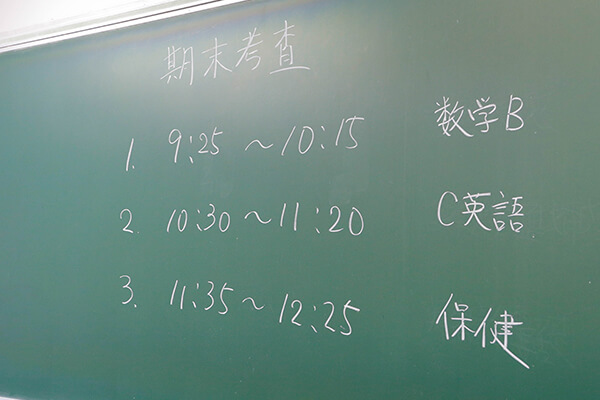 期末考査
1. 9:25 〜10:15 数学B
2. 10:30〜11:20 C英語
3. 11:35〜12:25 保健